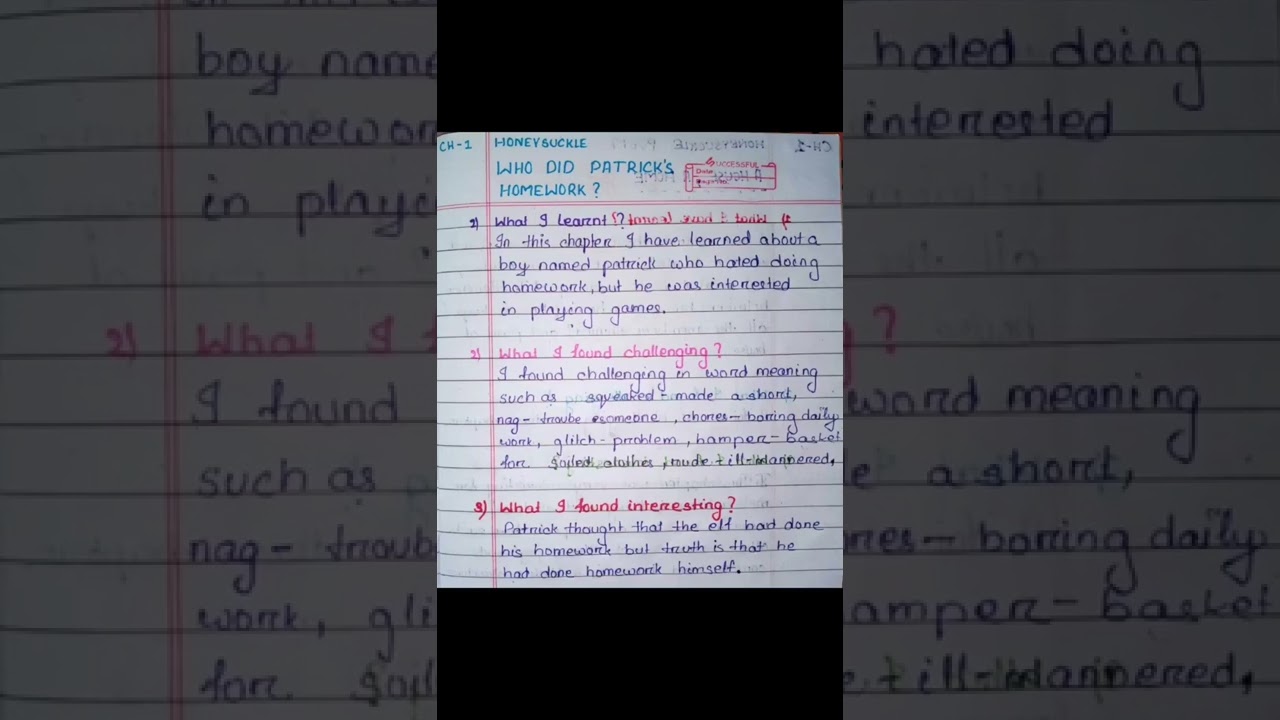 CH-1 HONEYSUCKLE
WHO DID PATRICK'S
HOMEWORK?
SUCCESSFUL
Date
1) What I learnt?
In this chapter I have learned about a
boy named patrick who hated doing
homework, but he was interested
in playing games.
2) What I found challenging?
I found challenging in word meaning
such as squeaked - made a short,
nag- troube someone, chores- borring daily
work, glitch - problem, hamper- basket
for soiled clothes, rude - ill-mannered,
3) What I found interesting?
Patrick thought that the elf had done
his homework but truth is that he
had done homework himself.